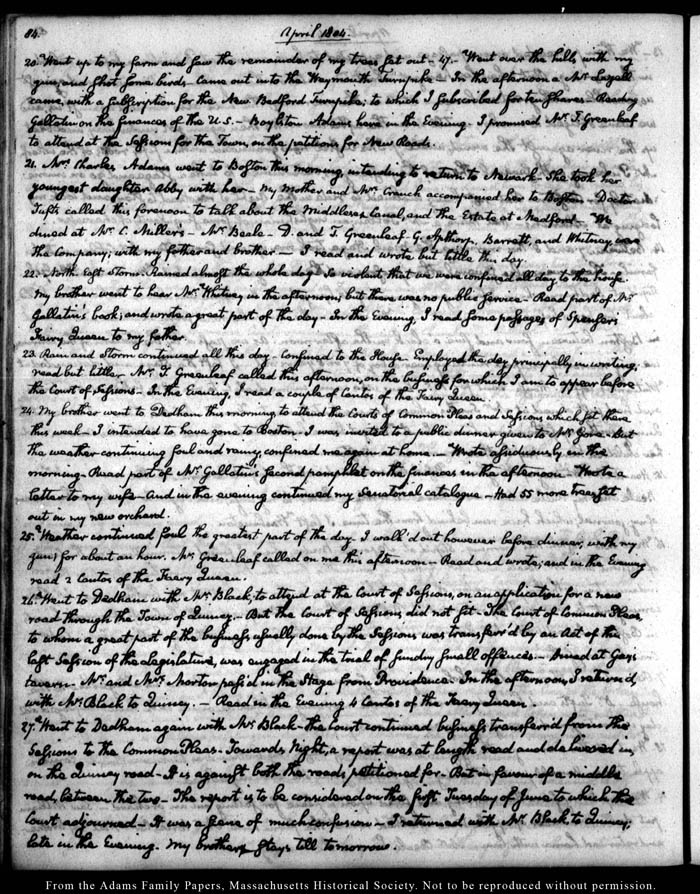 84.
April 1804.
20. Went up to my farm and saw the remainder of my trees set out – 47. – Went over the hills with my
gun, and shot some birds. Came out into the Weymouth Turnpike – In the afternoon a Mr.
came, with a subscription for the New Bedford Turnpike; to which I subscribed for ten shares. Reading
Gallatin on the finances of the U.S. – Boylston Adams here in the Evening. I promised Mr. T. Greenleaf
to attend at the Sessions for the Town, on the petitions for New Roads.
21. Mrs. Charles Adams went to Boston this morning, intending to return to Newark. She took her
youngest daughter Abby with her – My Mother and Mrs. Cranch accompanied her to Boston – Doctor
Tufts called this forenoon to talk about the Middlesex Canal, and the Estate at Medford – We
dined at Mr. C. Miller's – Mr. Beale – D. and T. Greenleaf, G. Apthorp, Barrett, and Whitney were
the Company; with my father and brother – I read and wrote but little this day.
22. North East Storm. Rained almost the whole day. So violent that we were confined all day to the house.
My brother went to hear Mr. Whitney, in the afternoon; but there was no public service – Read part of Mr.
Gallatin's book; and wrote a great part of the day – In the Evening, I read some passages of Spenser's
Fairy Queen to my father.
23. Rain and Storm continued all this day – Confined to the House. Employed the day principally in writing;
read but little. Mr. T. Greenleaf called this afternoon, on the business for which I am to appear before
the Court of Sessions – In the Evening, I read a couple of Cantos of the Fairy Queen.
24. My brother went to Dedham this morning, to attend the Courts of Common Pleas and Sessions which set there
this week – I intended to have gone to Boston. I was invited to a public dinner given to Mr. Gore. But
the weather continuing foul and rainy, confined me again at home. – Wrote assiduously, in the
morning – Read part of Mr. Gallatin's second pamphlet on the finances in the afternoon – Wrote a
letter to my wife – And in the evening continued my Senatorial catalogue – Had 55 more trees set
out in my new orchard.
25. Weather continued foul the greatest part of the day – I walk'd out however before dinner, with my
gun; for about an hour. Mr. Greenleaf called on me this afternoon – Read and wrote; and in the Evening
read 2 Cantos of the Faery Queen.
26. Went to Dedham with Mr. Black, to attend at the Court of Sessions, on an application for a new
road through the Town of Quincy – But the Court of Sessions did not set – The Court of Common Pleas,
to whom a great part of the business usually done by the Sessions was transferr'd by an Act of the
last Session of the Legislature, was engaged in the trial of sundry small offences. – Dined at Gay's
tavern – Mr. and Mrs. Morton pass'd in the Stage from Providence. In the afternoon, I return'd,
with Mr. Black to Quincy. – Read in the Evening 4 Cantos of the Faery Queen.
27. Went to Dedham again with Mr. Black – the Court continued business transferr'd from the
Sessions to the Common Pleas – Towards Night, a report was at length read and delivered in,
on the Quincy road – It is against both the roads petitioned for – But in favour of a middle
road, between the two – The report is to be considered on the first Tuesday of June to which the
Court adjourned – It was a scene of much confusion – I returned with Mr. Black to Quincy,
late in the Evening. My brother stays till tomorrow.
From the Adams Family Papers, Massachusetts Historical Society. Not to be reproduced without permission.